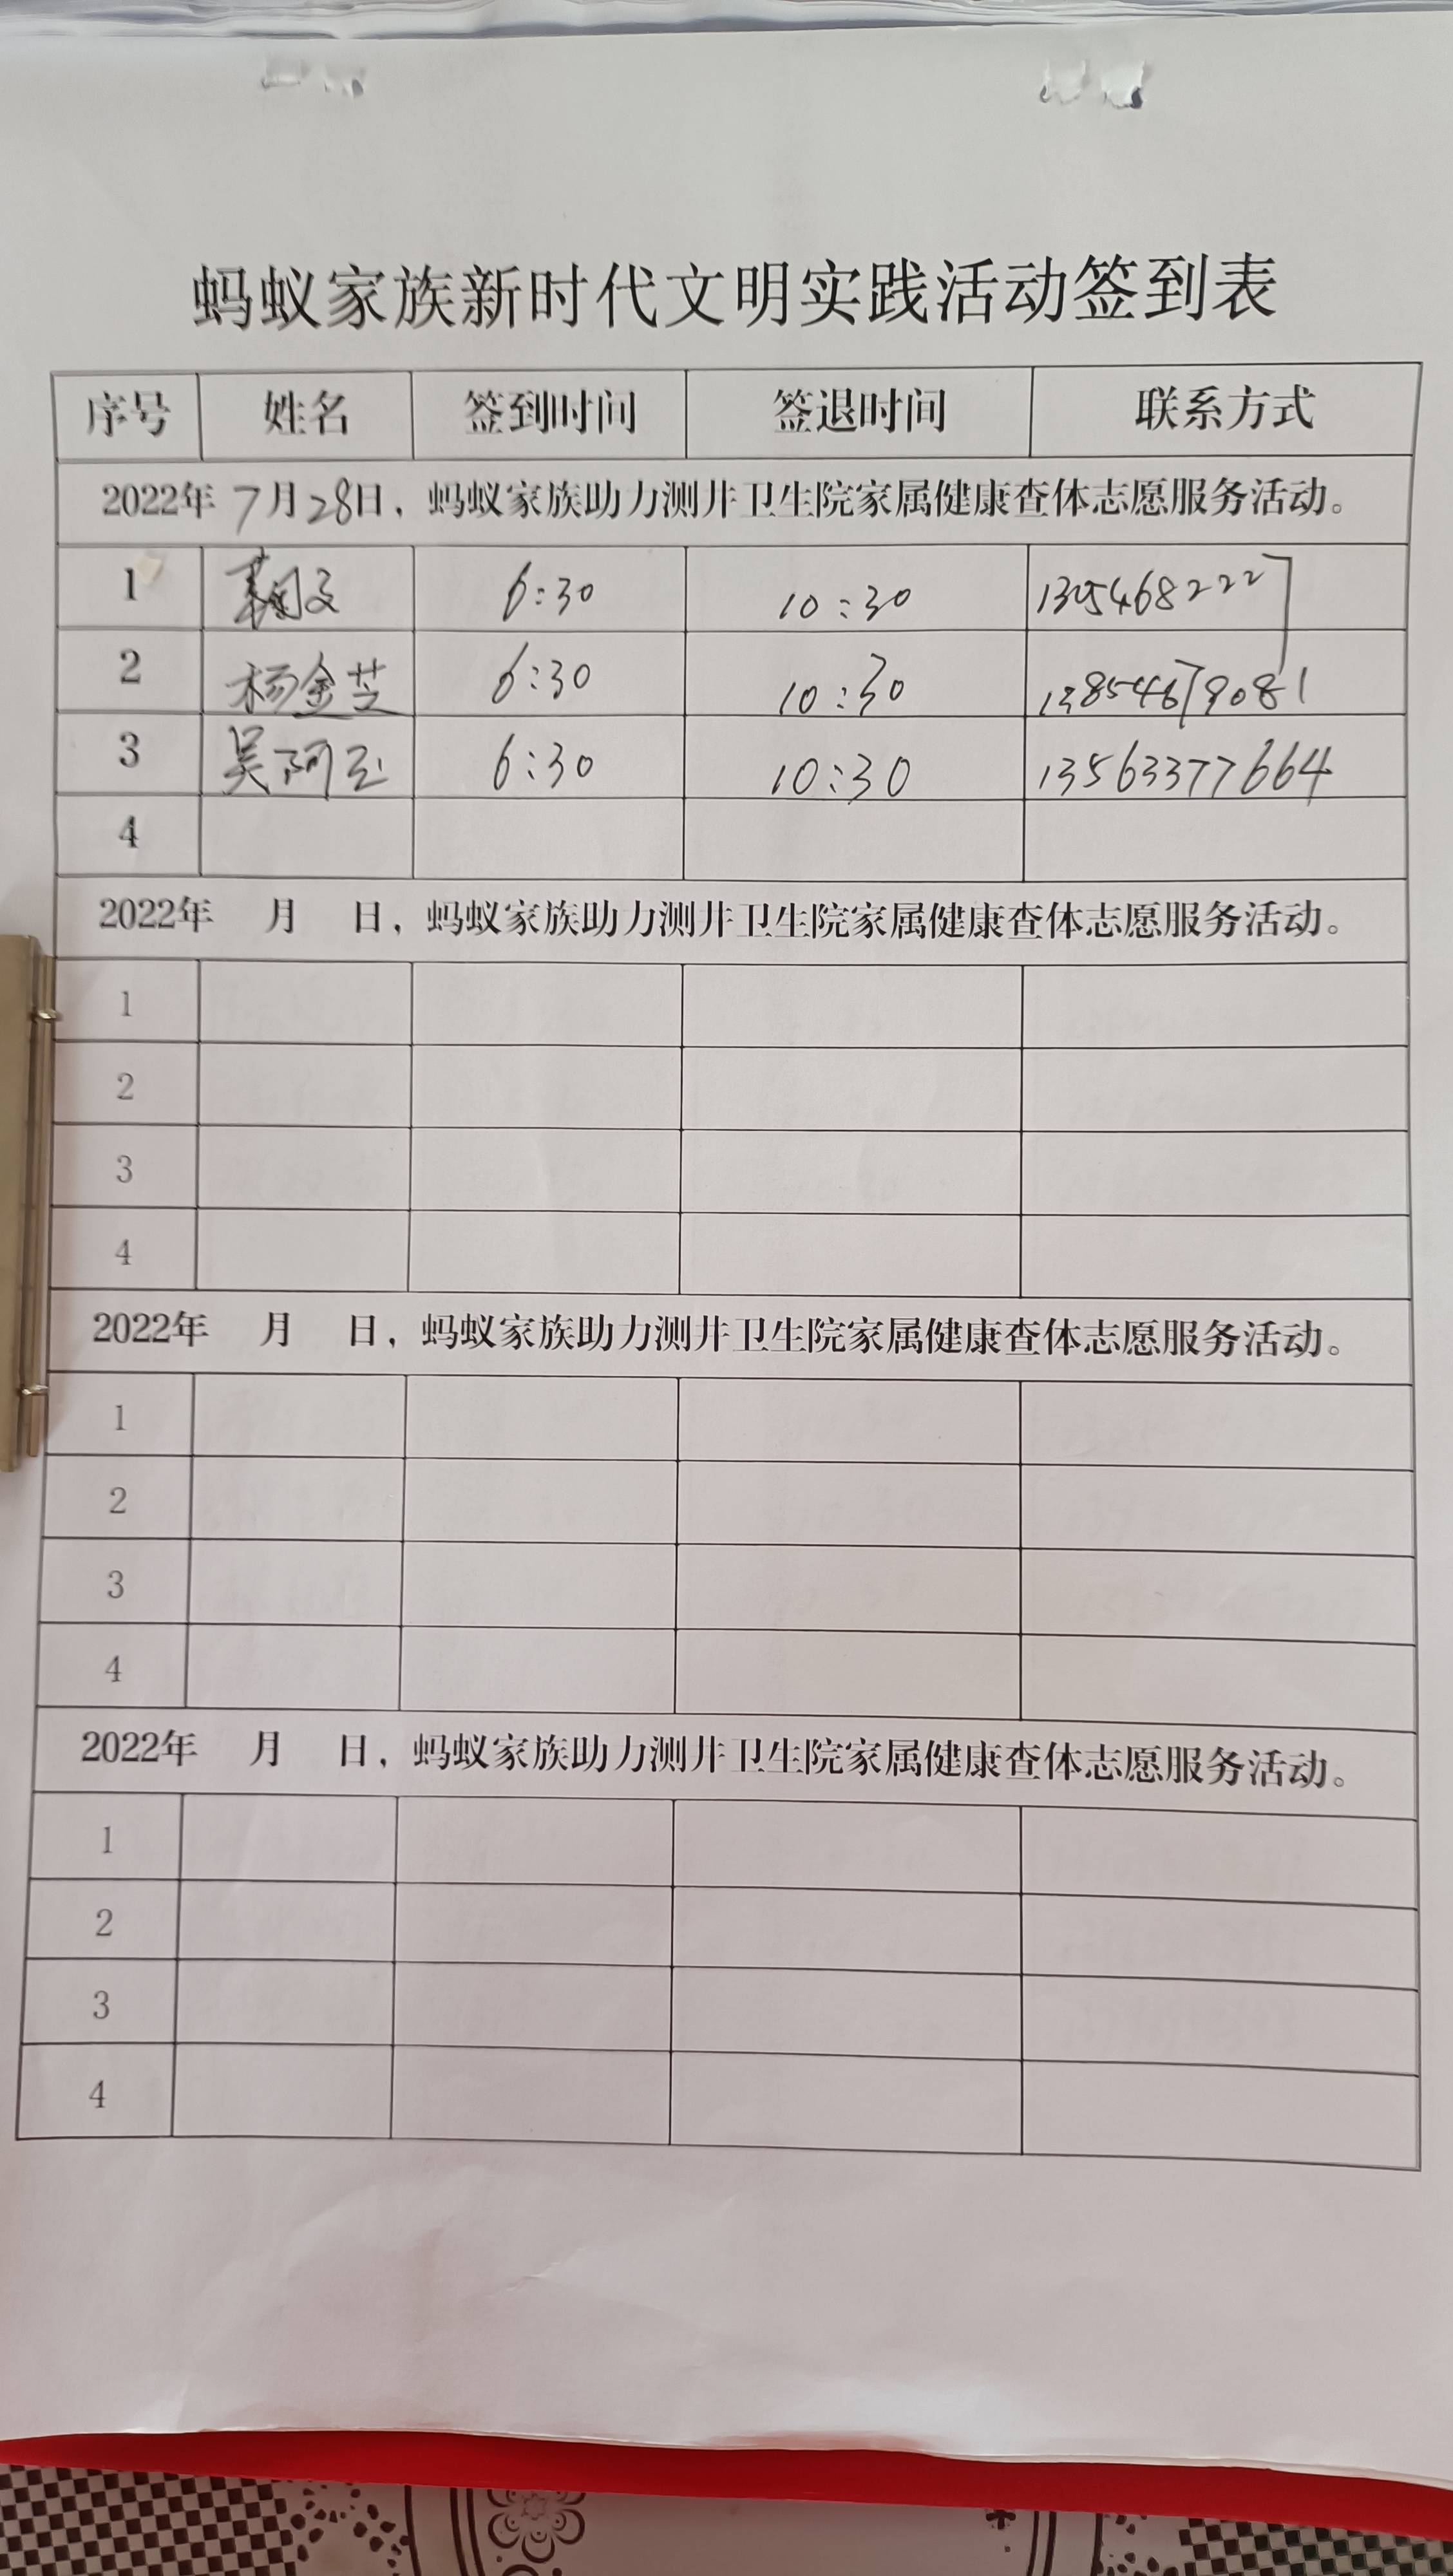 蚂蚁家族新时代文明实践活动签到表
序号 姓名 签到时间 签退时间 联系方式
2022年7月28日，蚂蚁家族助力测井卫生院家属健康查体志愿服务活动。
1 6:30 10:30 13054682227
2 杨金芝 6:30 10:30 13854679081
3 吴阿玉 6:30 10:30 13563377664
4
2022年 月 日，蚂蚁家族助力测井卫生院家属健康查体志愿服务活动。
1
2
3
4
2022年 月 日，蚂蚁家族助力测井卫生院家属健康查体志愿服务活动。
1
2
3
4
2022年 月 日，蚂蚁家族助力测井卫生院家属健康查体志愿服务活动。
1
2
3
4